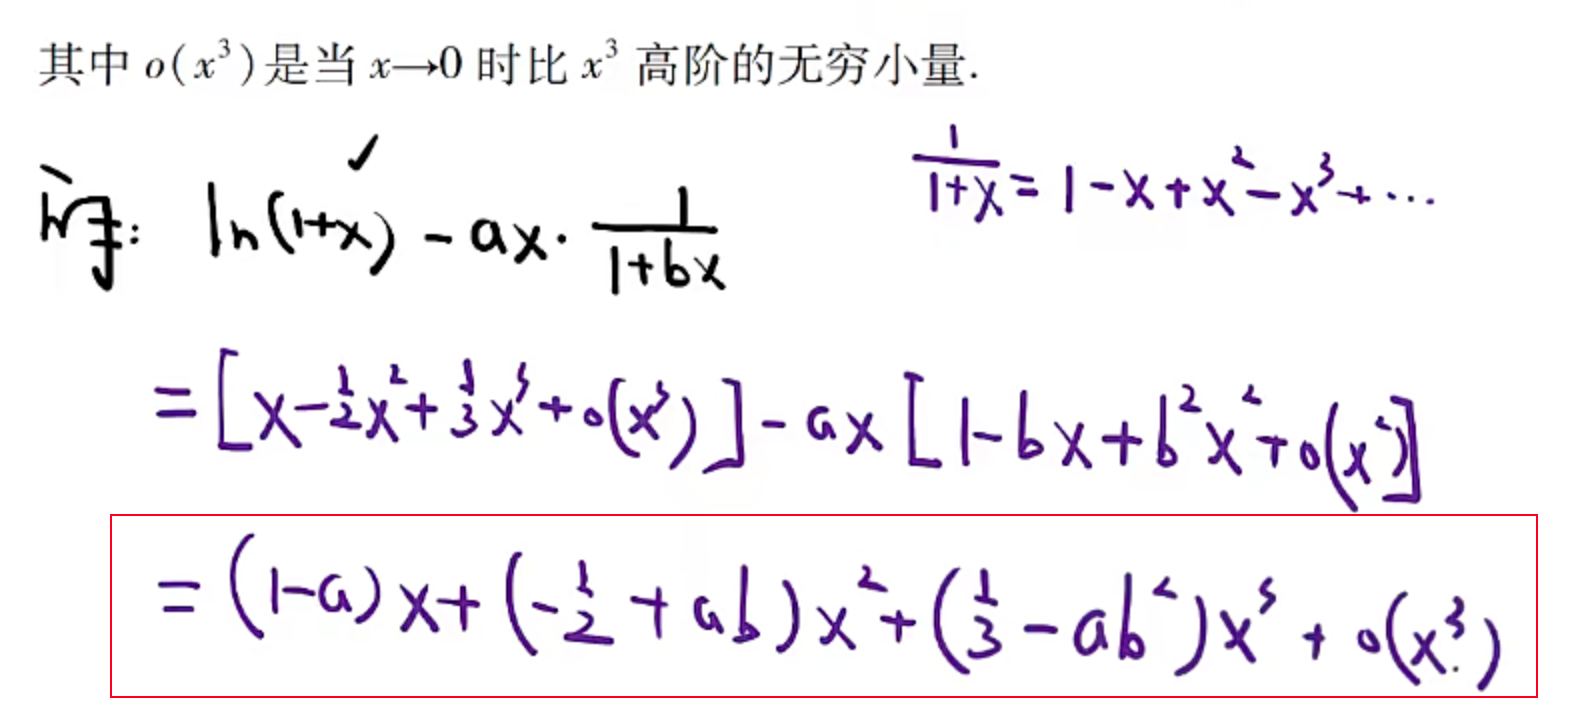 其中 o(x³)是当 x→0 时比 x³ 高阶的无穷小量.
✓
解: ln(1+x) - ax· 1/(1+bx)
1/(1+x) = 1-x+x²-x³+···
= [x-1/2x²+1/3x³+o(x³)] - ax[1-bx+b²x²+o(x²)]
= (1-a)x+(-1/2+ab)x²+(1/3-ab²)x³+o(x³)